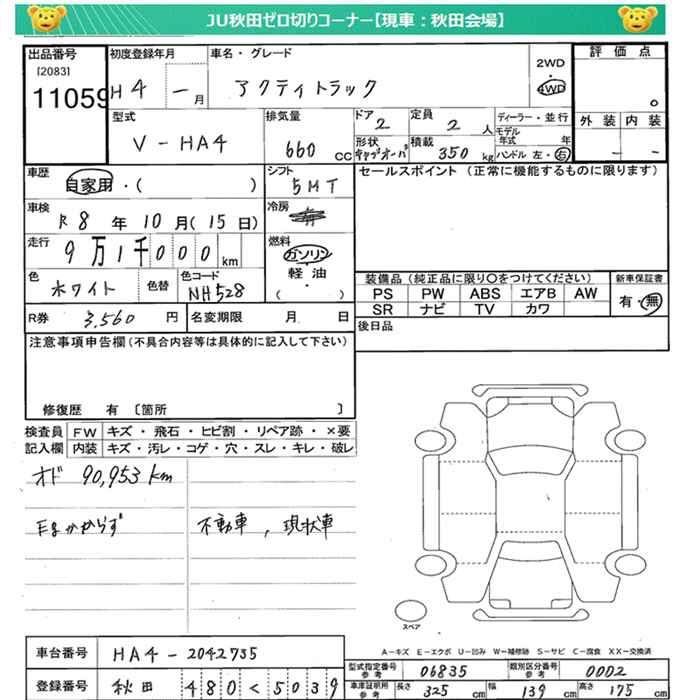 JU秋田ゼロ切りコーナー【現車：秋田会場】
出品番号 初度登録年月 車名・グレード 評価点
[2083] 11059 H4 - 月 アクティトラック 2WD・4WD 0
型式 排気量 ドア 定員 ディーラー・並行 外装 内装
V-HA4 660cc 2 2人 モデル年式 年 - -
形状 キャブオーバ 積載 350kg ハンドル 左・右
車歴 自家用・( ) シフト 5MT セールスポイント (正常に機能するものに限ります)
車検 R8年10月(15日) 冷房
走行 9万1千000km 燃料 ガソリン・軽油・( )
色 ホワイト 色替 色コード NH528 装備品 (純正品に限り○をつけてください) 新車保証書
PS PW ABS エアB AW 有・無
SR ナビ TV カワ
R券 3,560円 名変期限 月 日 後日品
注意事項申告欄(不具合内容等は具体的に記入して下さい)
修復歴 有 [箇所 ]
検査員 FW キズ・飛石・ヒビ割・リペア跡・×要
記入欄 内装 キズ・汚レ・コゲ・穴・スレ・キレ・破レ
オド 90,953km
Egかからず 不動車,現状車
スペア
A-キズ E-エクボ U-凹み W-補修跡 S-サビ C-腐食 XX-交換済
車台番号 HA4-2042735 型式指定番号 参考 06835 類別区分番号 参考 0002
登録番号 秋田 480く5039 車庫証明用 参考 長さ 325cm 幅 139cm 高さ 175cm